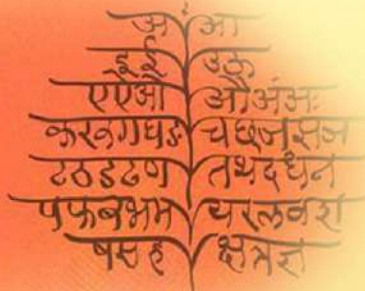 अ आ
इ ई उ ऊ
ए ऐ ओ औ अं अः
क ख ग घ ङ च छ ज झ ञ
ट ठ ड ढ ण त थ द ध न
प फ ब भ म य र ल व श
ष स ह क्ष त्र ज्ञ